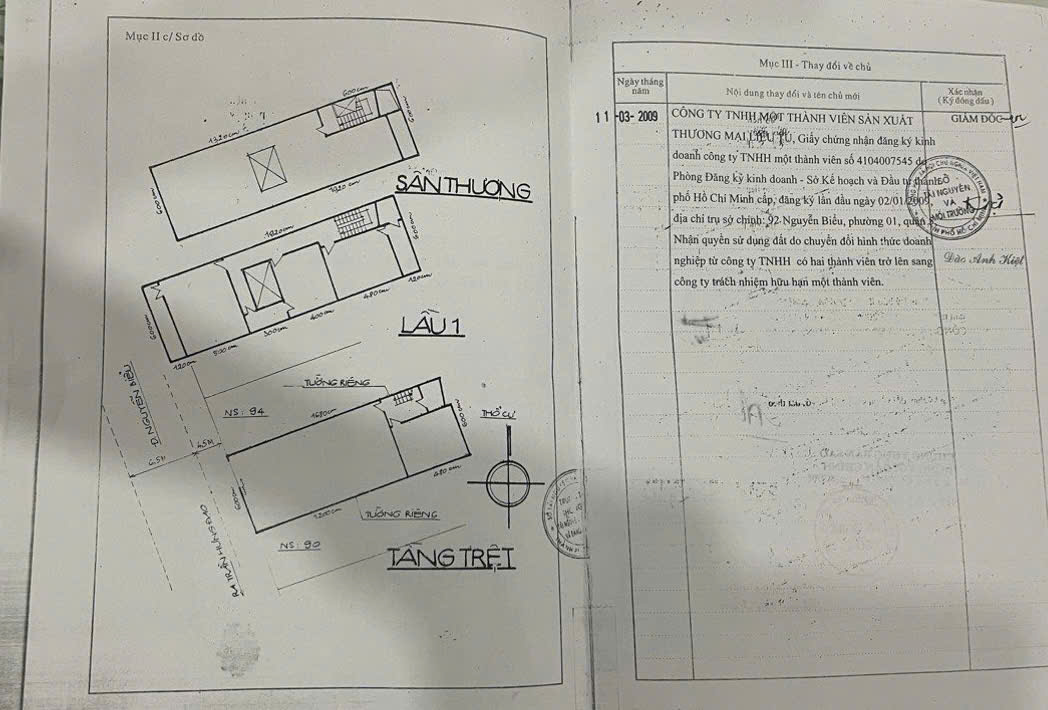 Mục II c/ Sơ đồ
600cm
1320cm
600cm
600cm
1920cm
SÂN THƯỢNG
1920cm
600cm
600cm
120cm
500cm
300cm
400cm
480cm
120cm
LẦU 1
Đ NGUYỄN BIỂU
TƯỜNG RIÊNG
NS: 94
1680cm
600cm
THỔ CƯ
4.5M
6.5M
600cm
480cm
1200cm
TƯỜNG RIÊNG
NS: 90
TẦNG TRỆT
RA TRẦN HƯNG ĐẠO
Mục III - Thay đổi về chủ
Ngày tháng
năm
Nội dung thay đổi và tên chủ mới
Xác nhận
(Ký đóng dấu)
11-03-2009
CÔNG TY TNHH MỘT THÀNH VIÊN SẢN XUẤT
THƯƠNG MẠI LIỆU TÚ, Giấy chứng nhận đăng ký kinh
doanh công ty TNHH một thành viên số 4104007545 do
Phòng Đăng ký kinh doanh - Sở Kế hoạch và Đầu tư thành
phố Hồ Chí Minh cấp, đăng ký lần đầu ngày 02/01/2009,
địa chỉ trụ sở chính: 92 Nguyễn Biểu, phường 01, quận
Nhận quyền sử dụng đất do chuyển đổi hình thức doanh
nghiệp từ công ty TNHH có hai thành viên trở lên sang
công ty trách nhiệm hữu hạn một thành viên.
GIÁM ĐỐC
SỞ
TÀI NGUYÊN
VÀ
MÔI TRƯỜNG
Đào Anh Kiệt